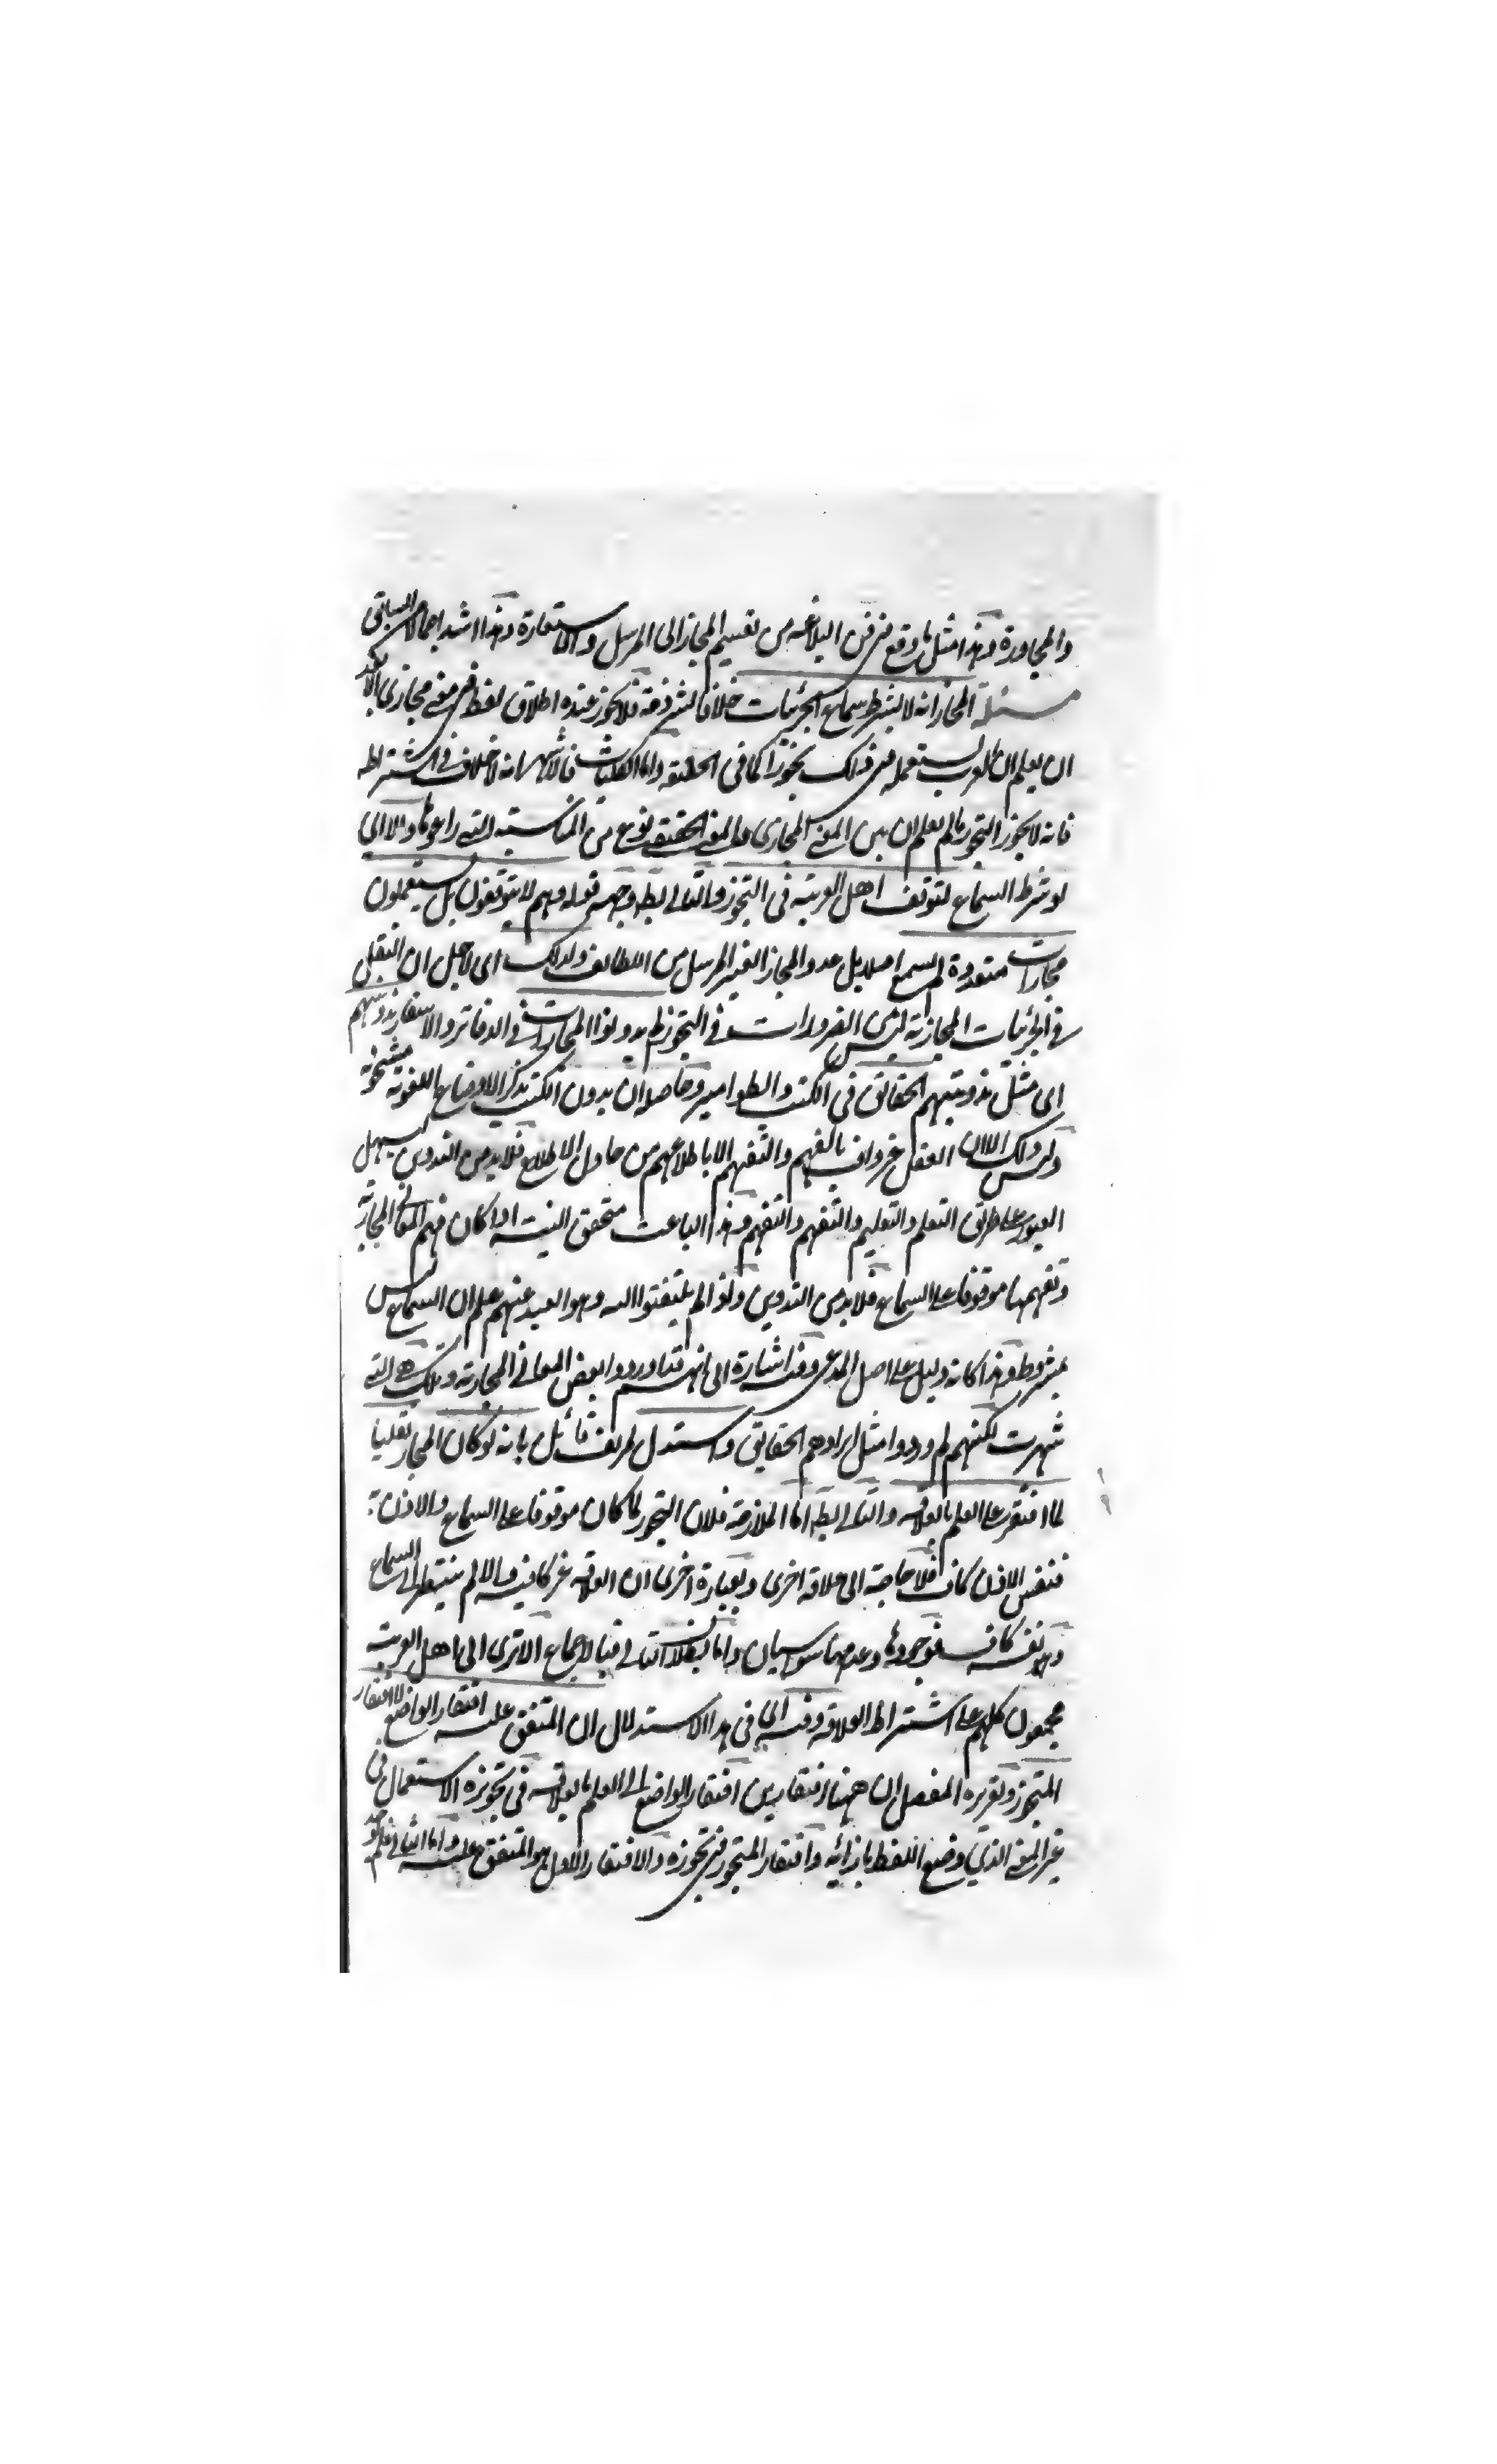 والمجاورة وهذا مثل ما وقع في فن البلاغه من تقسيم المجاز الى المرسل والاستعارة وهذا اشد اجمالا من السابق
مسئلة المجاز انه لا يشترط سماع الجزئيات خلافا لشرذمة فلا يجوز عنده اطلاق لفظ في معنى مجازى الا بعد
ان يعلم ان العرب يستعمله في ذلك تجوزا كما فى الحقيقه واما الكليات فالاشهر انه لا خلاف فى اشتراطه
فانه لا يجوز التجوز ما لم يعلم ان بين المعنى المجازى والمعنى الحقيقى نوع من المناسبته التى راعوها والا اى
لو شرط السماع لتوقف اهل العربية فى التجوز والتالى بط وجهه قوله وهم لا يتوقفون بل يستعملون
مجازات متعددة لم يسمع اصلا بل عدوا المجاز الغير المرسل من اللطائف ولذلك اى لاجل ان النقل
فى الجزئيات المجازية ليس من الضرورات فى التجوز لم يدونوا المجازات فى الدفاتر والاسفار تدوينهم
اى مثل تدوينهم الحقائق فى الكتب والطوامير وحاصله ان بدون الكتب تذكر الاوضاع اللغوية مشحونة
وليس ذلك الا لان العقل غير واف بالفهم والتفهيم الا باطلاعهم من حاول الاطلاع فلا بد من التدوين ليسهل
العبور على طريق التعلم والتعليم والتفهم والتفهيم وهذا الباعث متحقق البتة اذا كان فهم المعانى المجازية
وتفهيمها موقوفا على السماع فلا بد من التدوين واذا لم يلتفتوا اليه وهو البعيد عنهم علم ان السماع ليس
بمشروط وهذا كانه دليل على اصل المدعى وفيه اشارة الى انهم قد اوردوا بعض المعانى المجازية وتلك هى التى
شهرت لكنهم لم يوردوا مثل ايرادهم الحقايق واستدل لمزيف قائل بانه لو كان المجاز نقليا
لما افتقر على العلم بالعلاقه والتالى بط اما الملازمة فلان التجوز لما كان موقوفا على السماع والاذن
فنفس الاذن كاف فلا حاجة الى علاقة اخرى وبعبارة اخرى ان العلاقه غير كافية والا لم ينتظر الى السماع
وهو نفسه كاف فوجودها وعدمها سيان واما بطلان التالى فبالاجماع الا ترى الى اهل العربية
مجمعون كلهم على اشتراط العلاقة وفيه اى فى هذا الاستدلال ان المتفق عليه افتقار الواضع لا افتقار
المتجوز وتقريره المفصل ان ههنا افتقارين افتقار الواضع الى العلم بالعلاقه فى تجويزه الاستعمال فى
غير المعنى الذى وضع اللفظ بازائه وافتقار المتجوز فى تجوزه والافتقار الاول هو المتفق عليه واما الثانى فلم